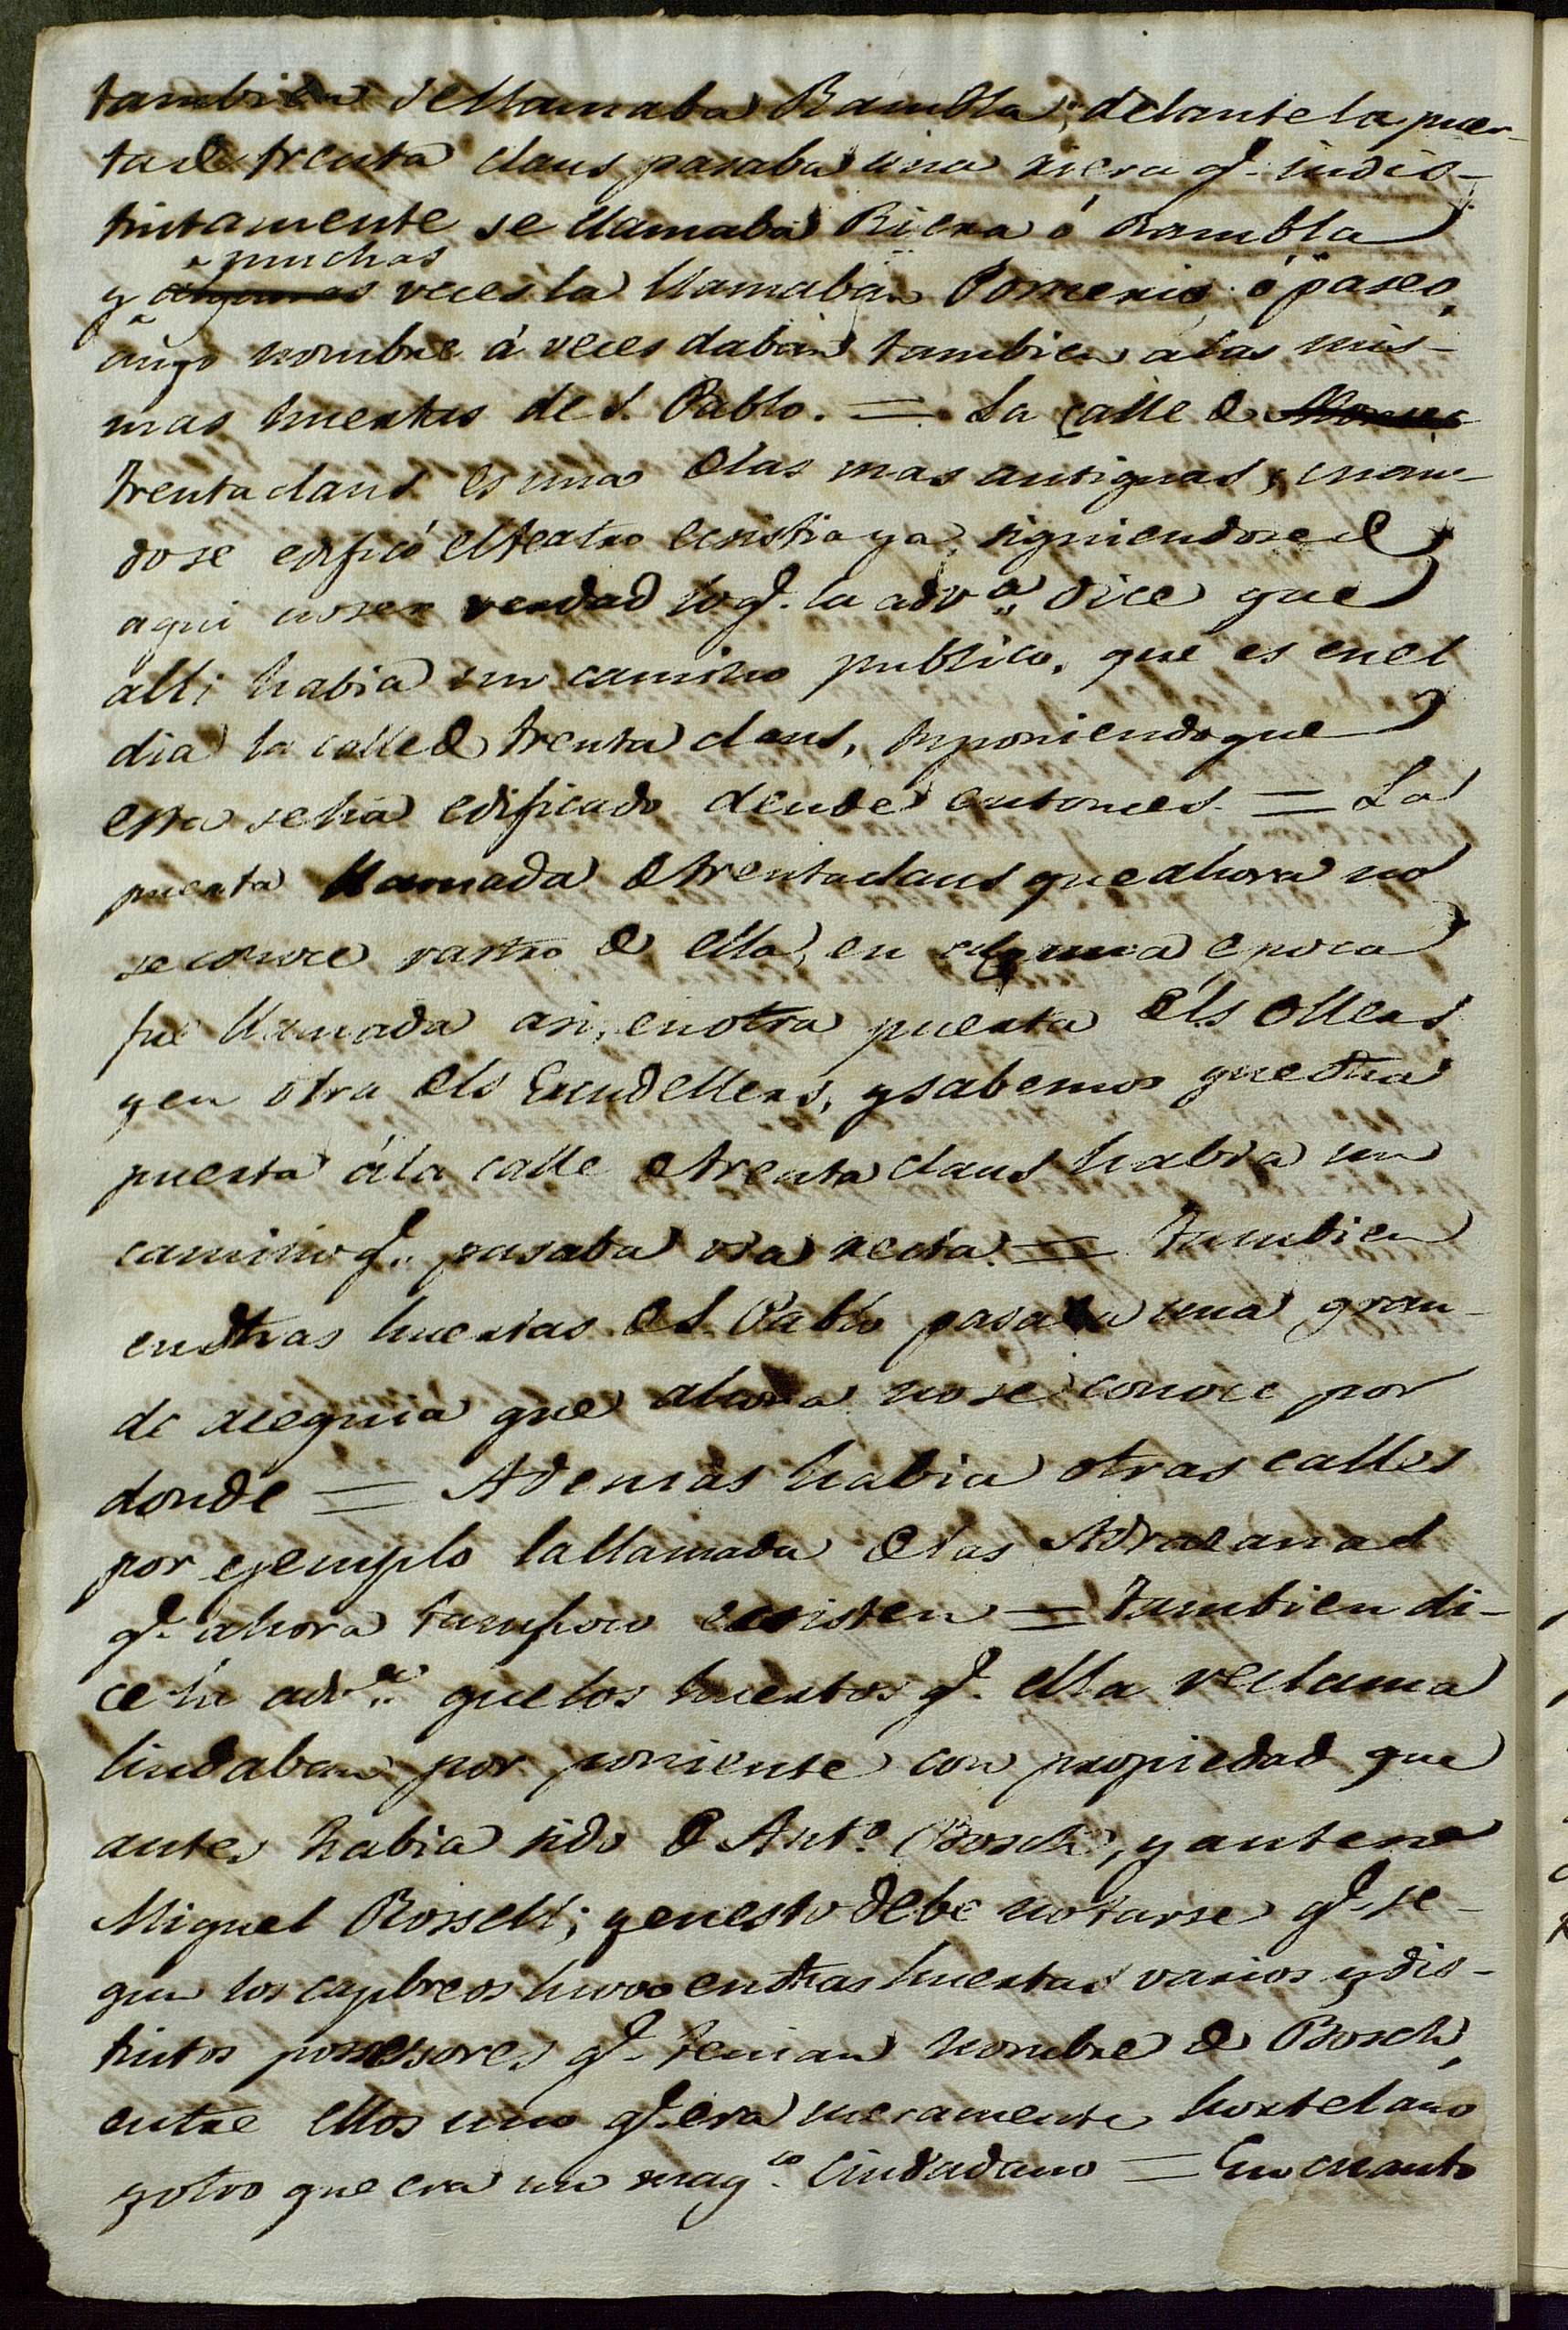 tambien se llamaba Rambla; delante la puer-
ta de trenta claus pasaba una riera q.e indis-
tintamente se llamaba Riera ó Rambla
y muchas veces la llamaban Pomerio ó paseo,
cuyo nombre á veces daban tambien a las mis-
mas huertas de S. Pablo. = La calle de
trenta claus es una de las mas antiguas, cuan-
do se edificó el teatro ecsistia ya, siguiendose de
aqui no ser verdad lo q.e la adv.a dice que
alli habia un camino publico, que es en el
dia la calle de trenta claus, suponiendo que
esta se ha edificado desde entonces = La
puerta llamada de trenta claus que ahora no
se conoce rastro de ella, en alguna epoca
fue llamada asi, en otra puerta dels Ollers
y en otra dels Escudellers, y sabemos que dha
puerta á la calle de trenta claus habia un
camino q.e pasaba via recta. = Tambien
en dhas huertas de S. Pablo pasaba una gran-
de acequia que ahora no se conoce por
donde = Ademas habia otras calles
por ejemplo la llamada de las Adrasanas
q.e ahora tampoco ecsisten = Tambien di-
ce la adv.a que los huertos q.e ella reclama
lindaban por poniente con propiedad que
antes habia sido de Ant.o Bosch, y antes a
Miguel Rossell; y en esto debe notarse q.e se-
gun los capbreos huvo en dhas huertas varios y dis-
tintos possesores q.e tenian nombre de Bosch,
entre ellos uno q.e era meramente hortelano
y otro que era un mag.co Ciudadano = En cuanto